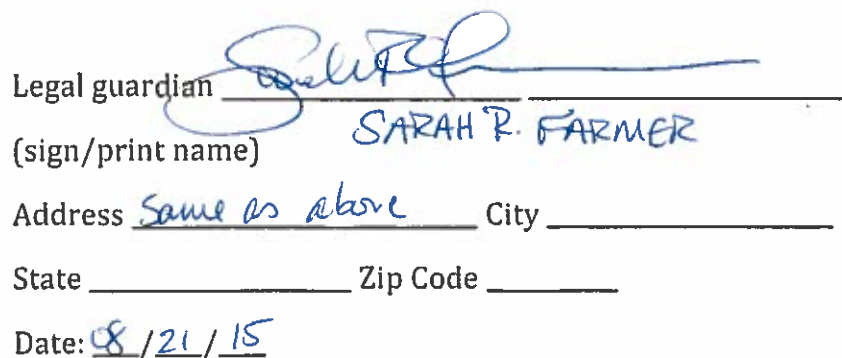 Legal guardian
(sign/print name) SARAH R. FARMER
Address Same as above City
State Zip Code
Date: 08/21/15